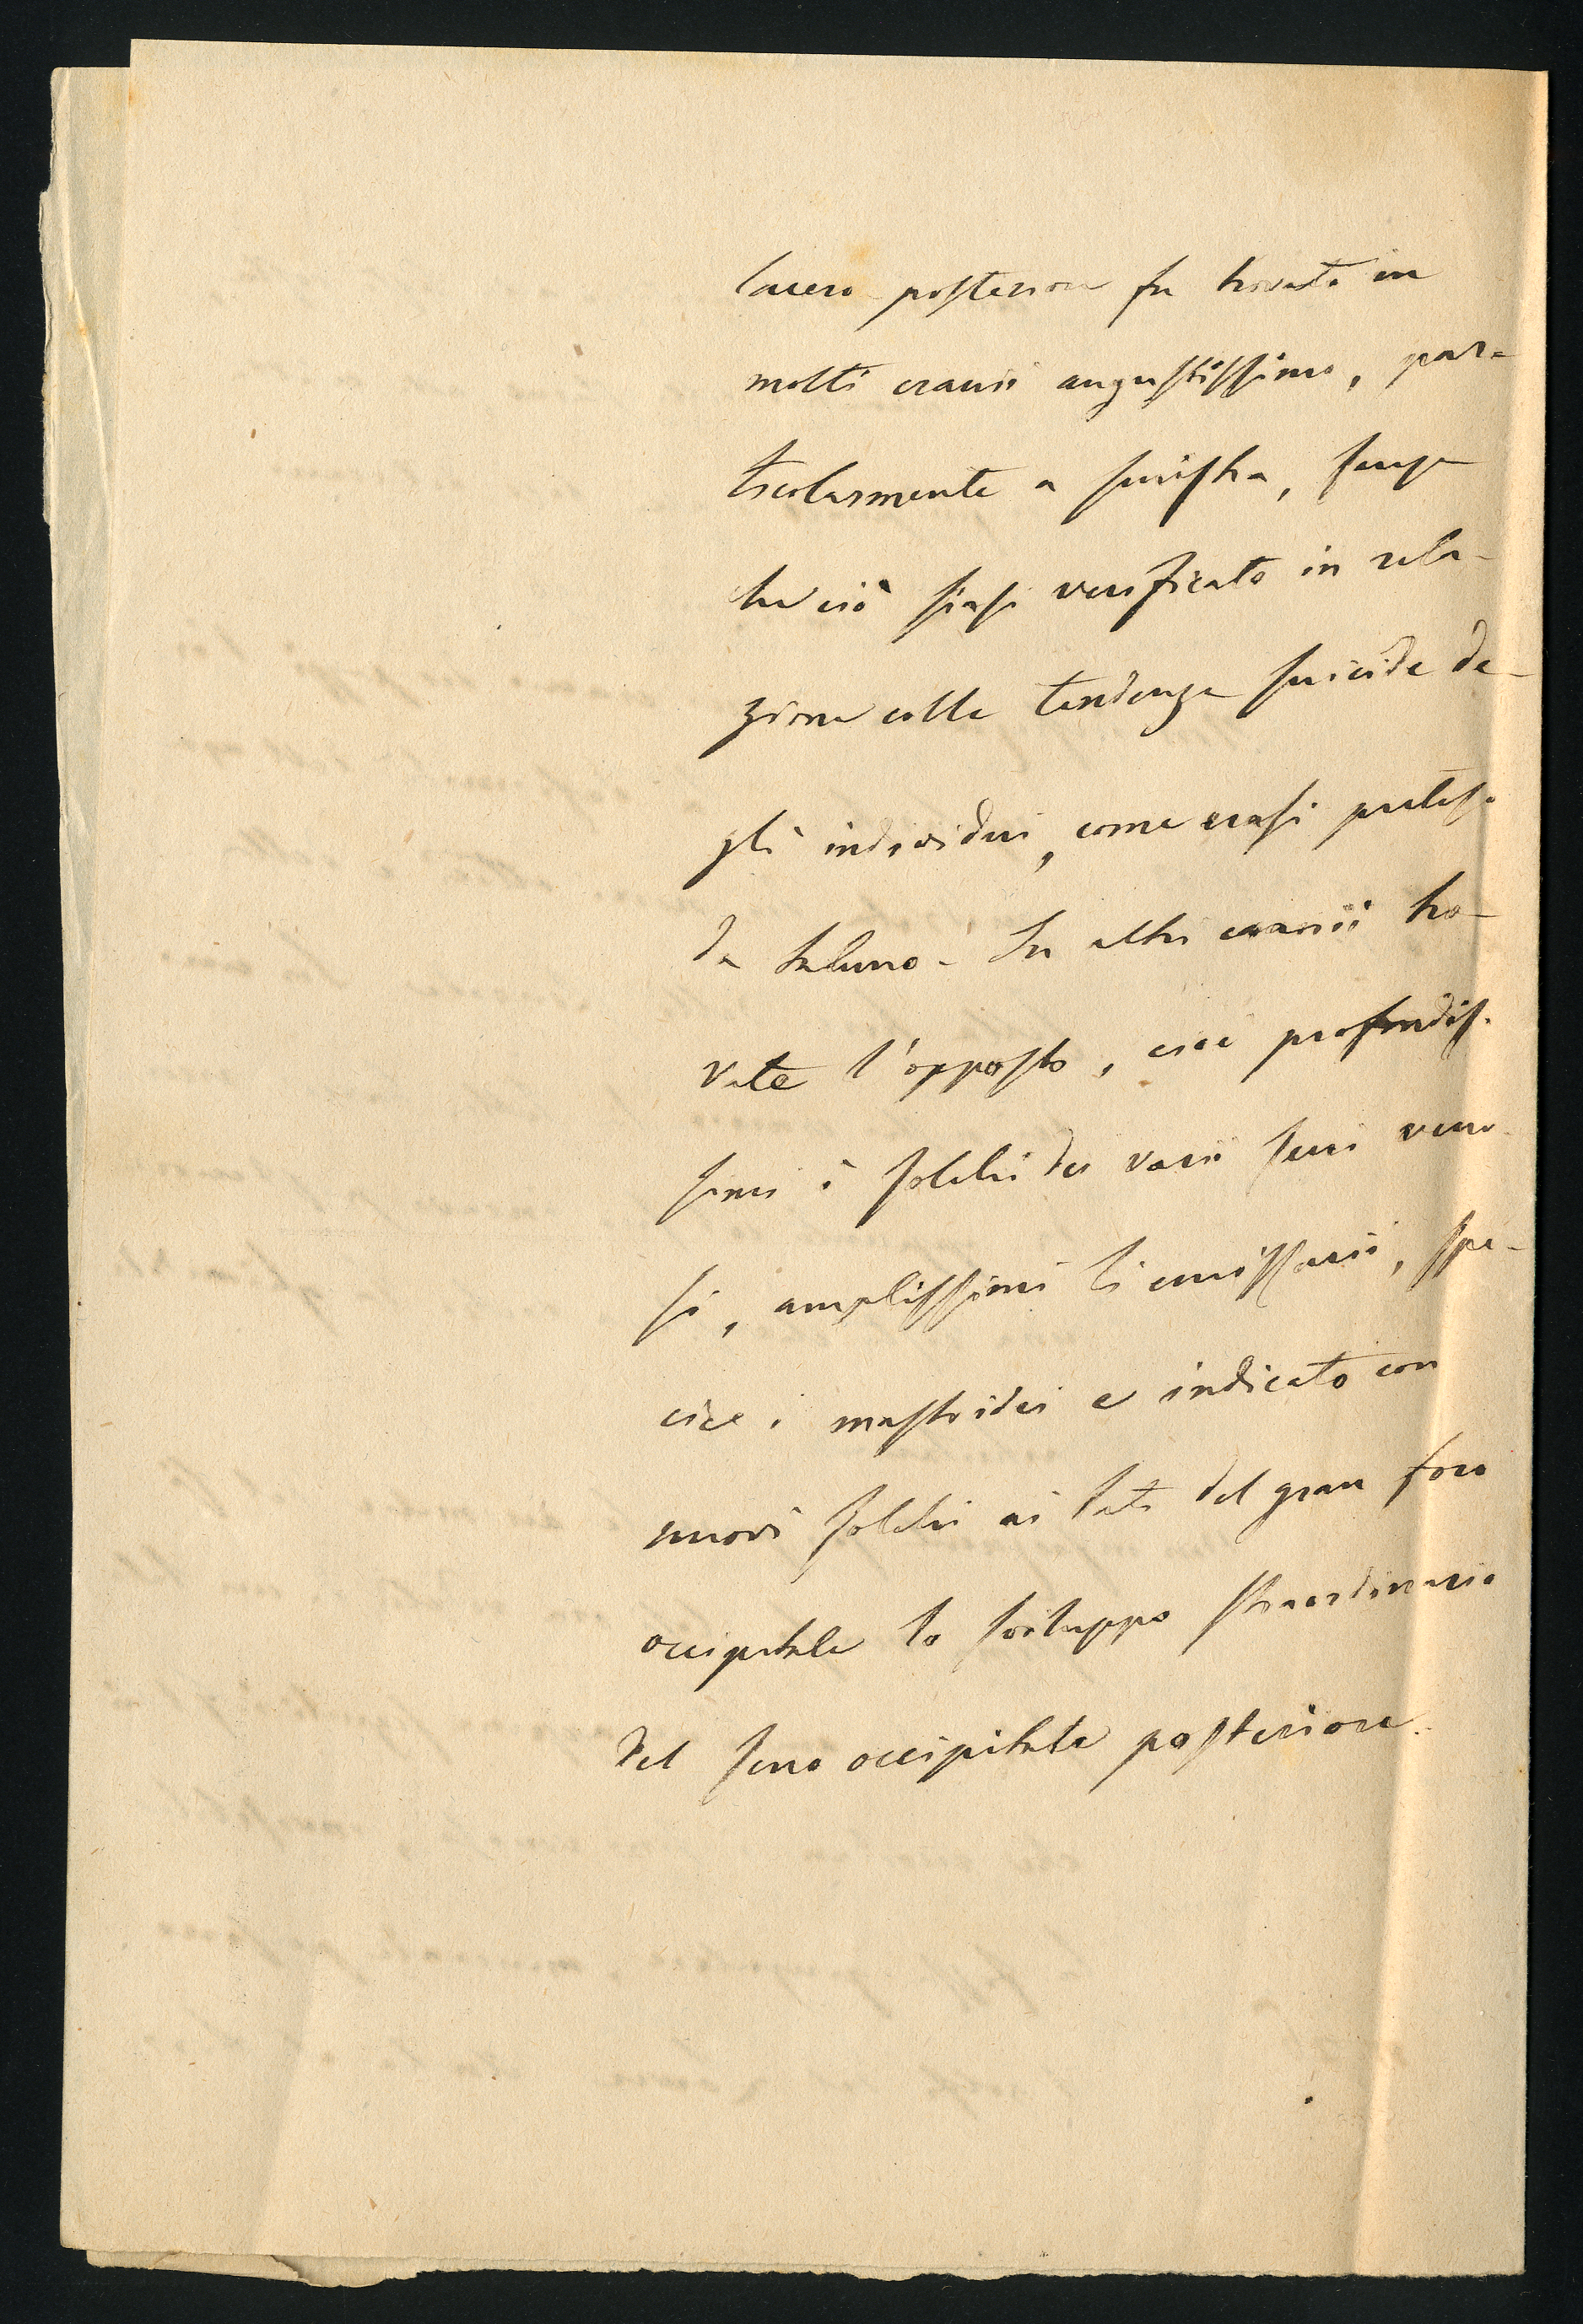 lacero posteriore fu trovato in
molti cranii angustissimo, par-
ticolarmente a sinistra, senza
che ciò siasi verificato in rela-
zione colle tendenze suicide de-
gli individui, come erasi preteso
da taluno - In altri cranii tro-
vate l'opposto, cioè profondis-
simi i solchi dei varii seni veno-
si, amplissimi li emissarii, spe-
cie i mastoidei e indicato con
nuovi solchi ai lati del gran foro
occipitale lo sviluppo straordinario
del seno occipitale posteriore.